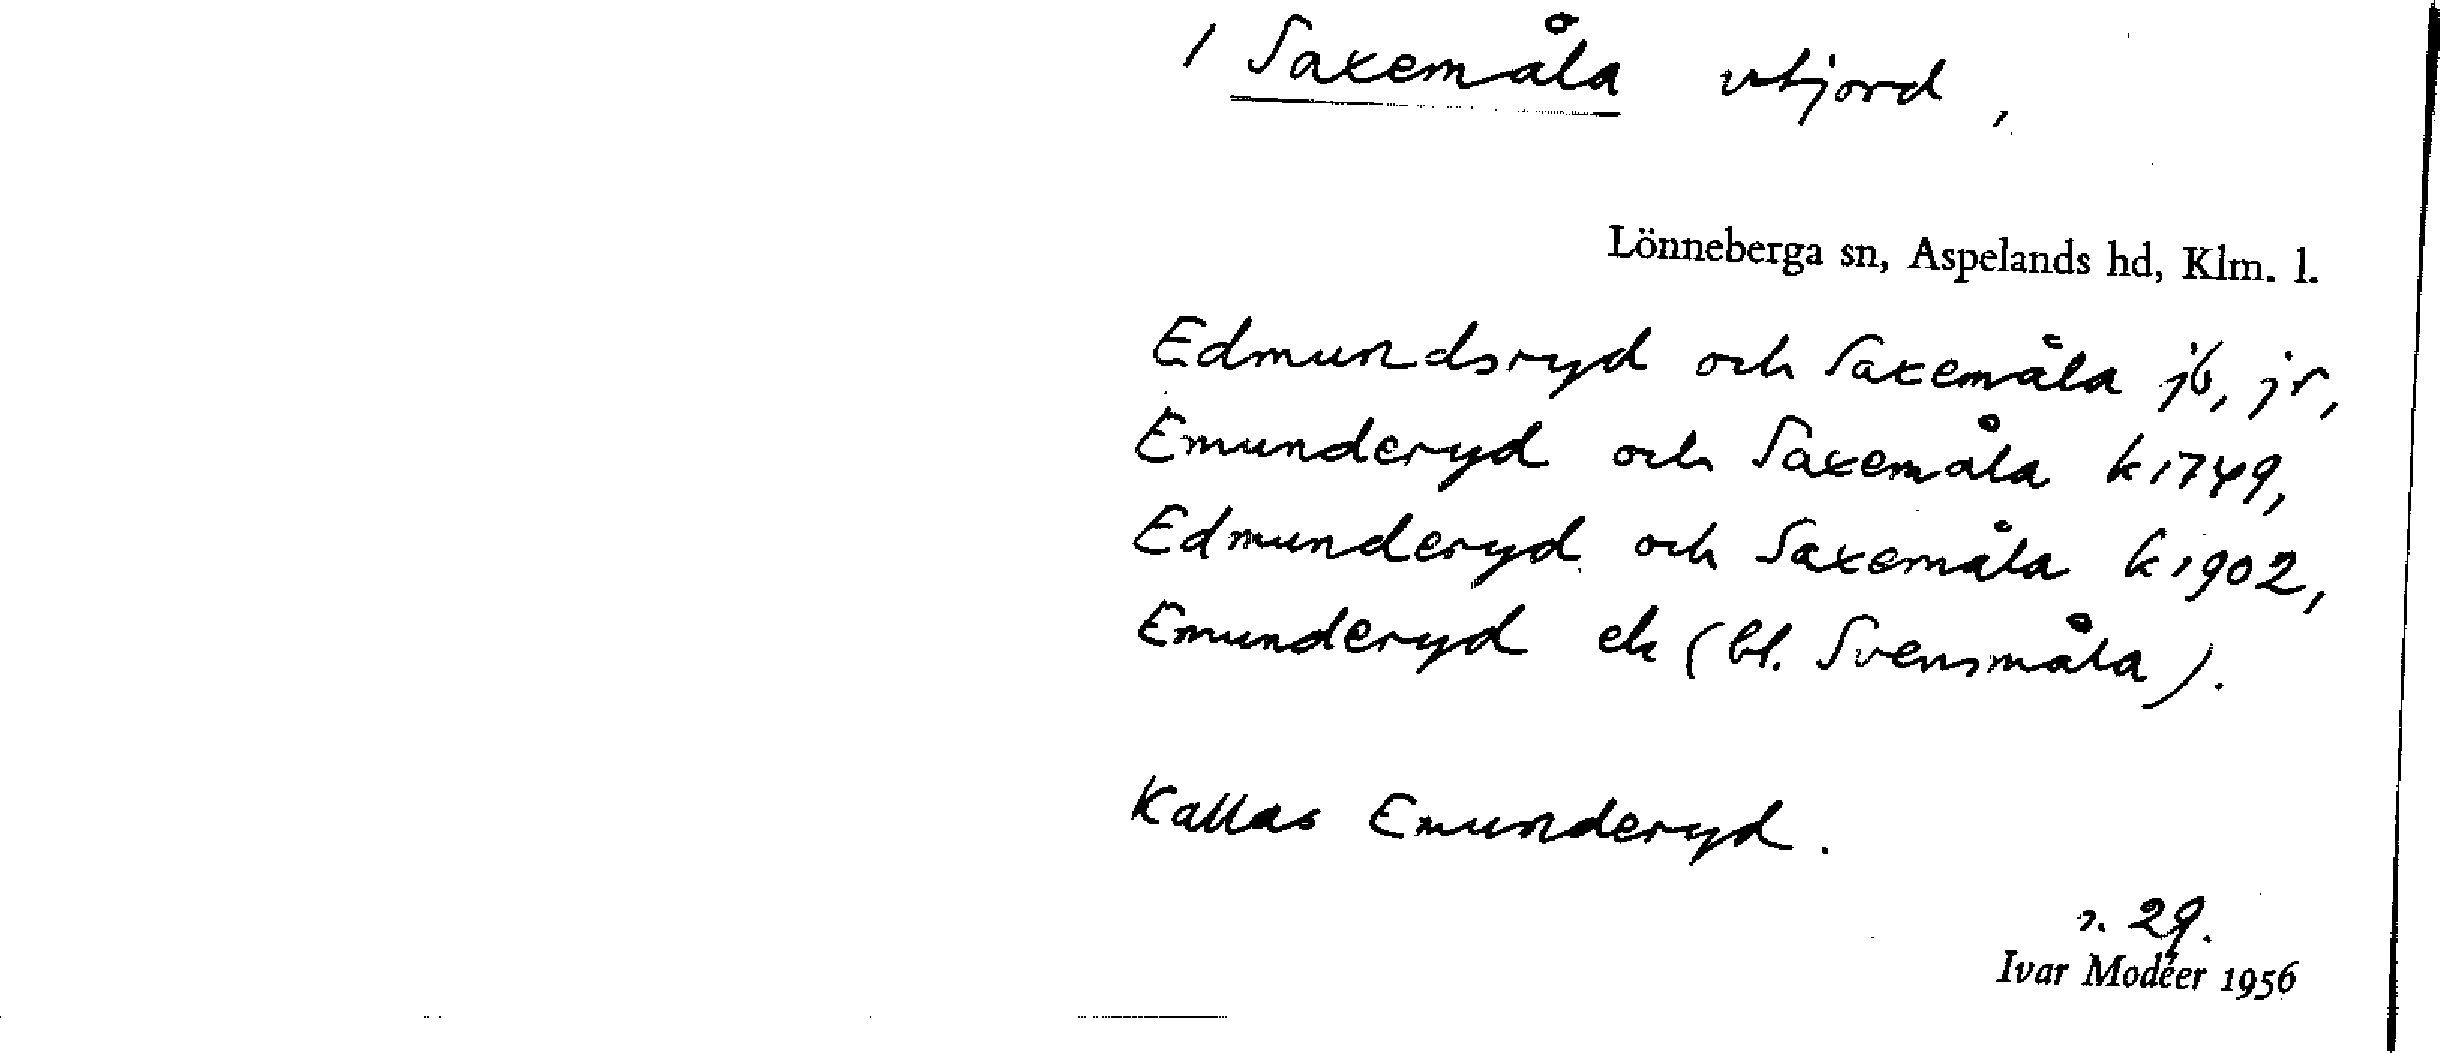 / Saxemåla utjord,
Lönneberga sn, Aspelands hd, Klm. l.
Edmundsryd och Saxemåla jb, jr,
Emunderyd och Saxemåla k 1749,
Edmunderyd och Saxemåla k 1902,
Emunderyd ek (bl. Svensmåla).
Kallas Emunderyd.
s. 29.
Ivar Modéer 1956